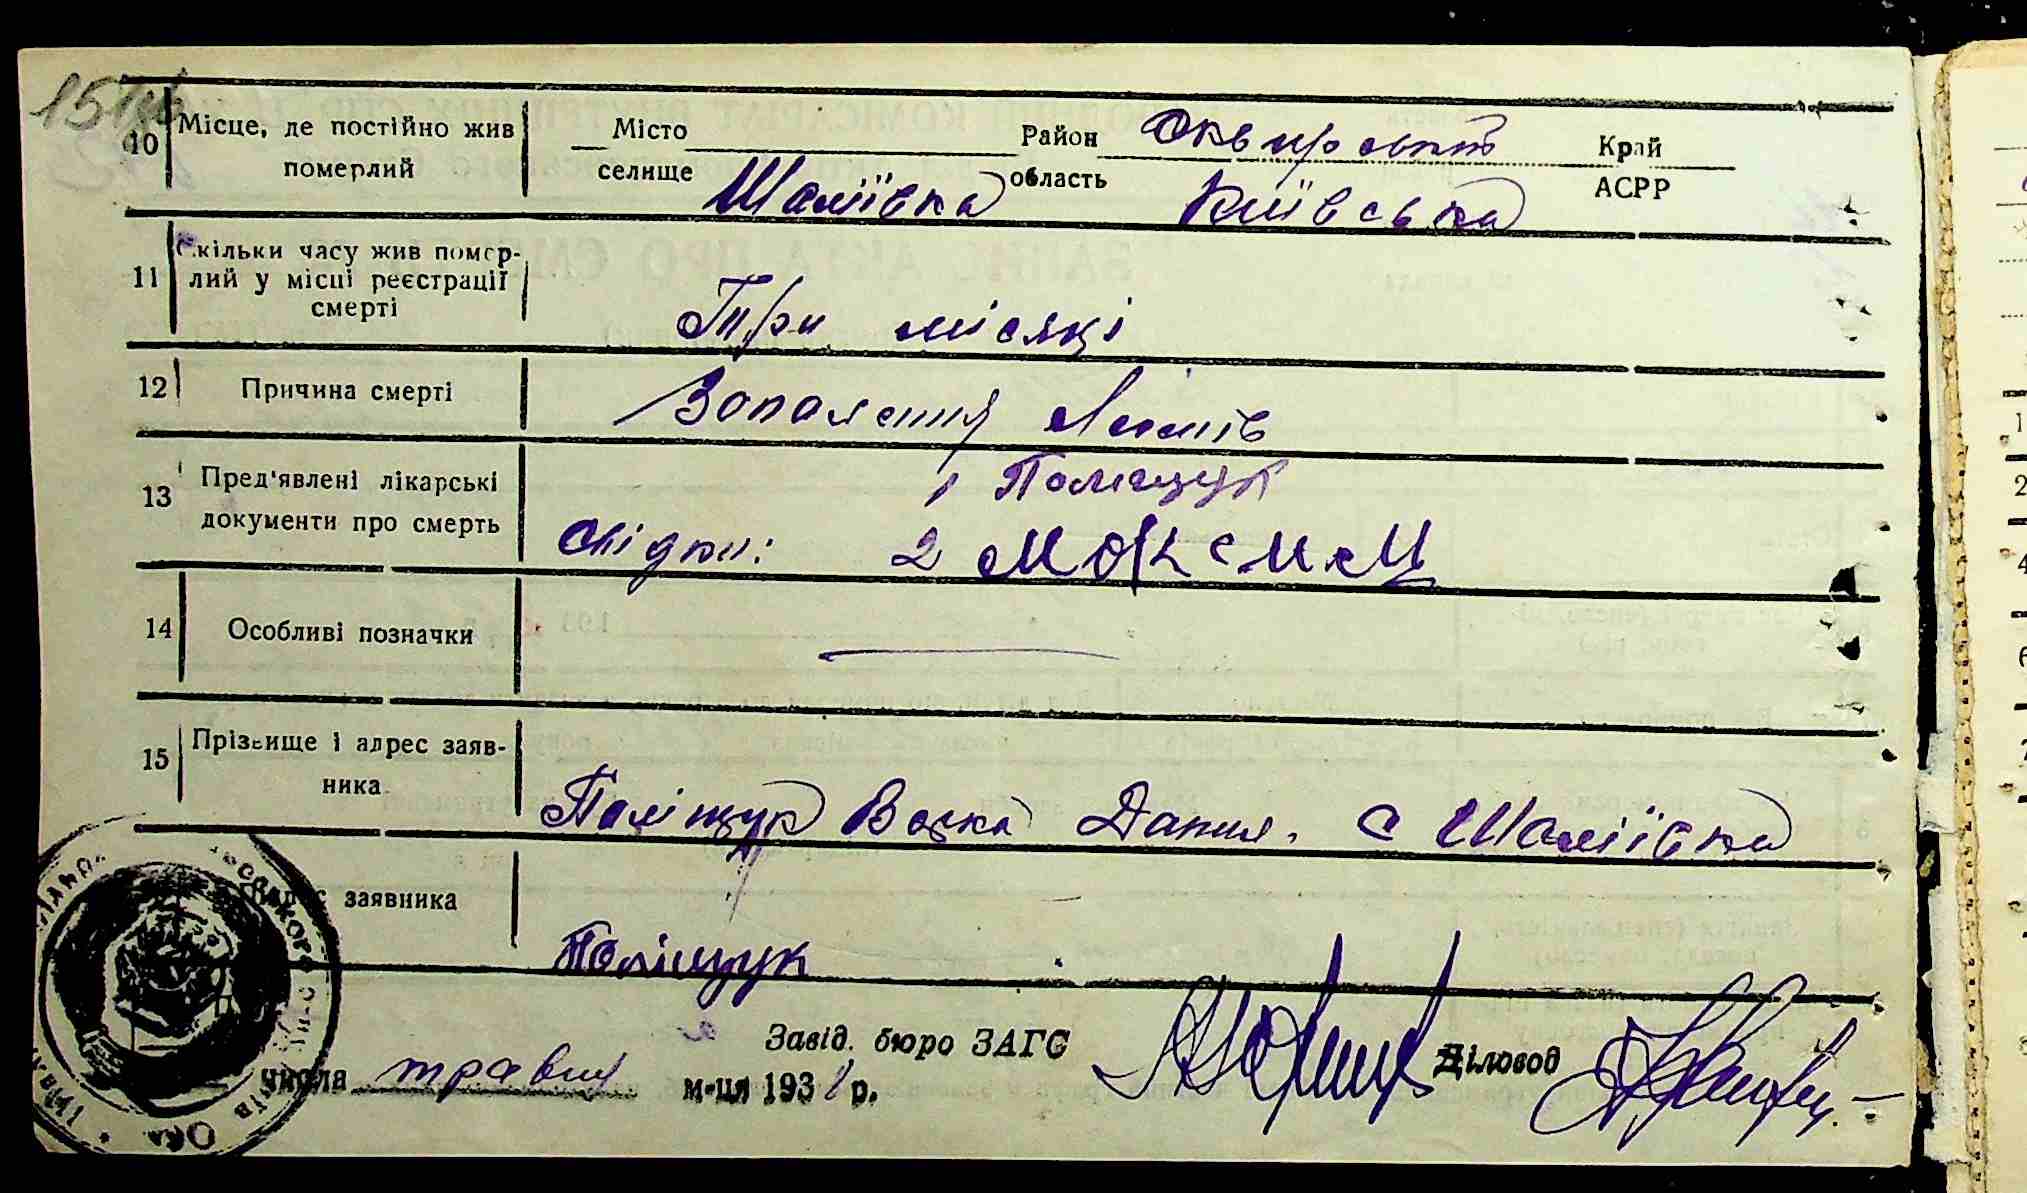 10 Місце, де постійно жив померлий
Місто селище Шаліївка
Район Сквирський
область Київська
Край АСРР
11 Скільки часу жив померлий у місці реєстрації смерті
Три місяці
12 Причина смерті
Запалення Легенів
13 Пред'явлені лікарські документи про смерть
1 Поліщук
Свідки: 2
14 Особливі позначки
15 Прізвище і адрес заявника
Поліщук Васка Данил. с Шаліївка
заявника
Поліщук
Завід. бюро ЗАГС
Діловод
числа травня м-ця 1938 р.